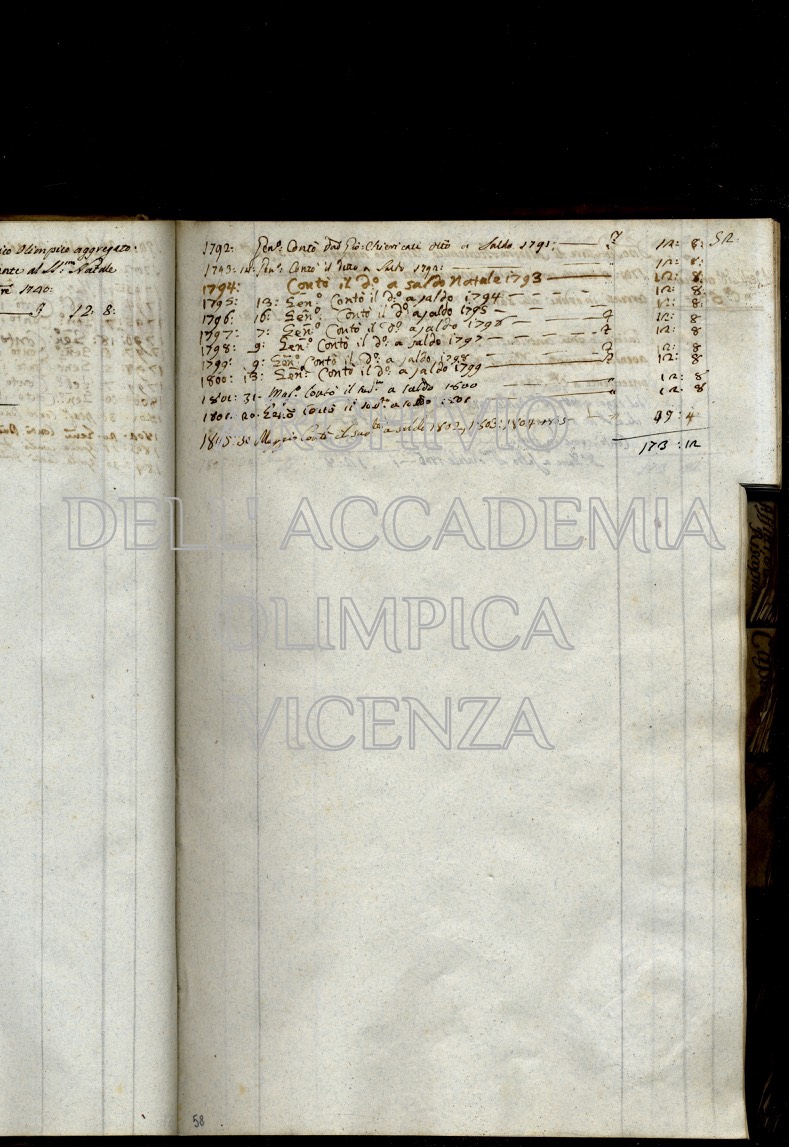 Olimpico aggregato.
al S.mo Natale
1740:
12: 8:
52
1792: Gen.o Contò Gio: Chiericati a Saldo 1791: 12: 8:
1793: Gen.o Contò il detto a Saldo 1792: 12: 8:
1794: Contò il d.o a saldo Natale 1793 12: 8
1795: 13: Gen.o Contò il d.o a saldo 1794 12: 8
1796: 16: Gen.o: Contò il d.o a saldo 1795 12: 8
1797: 7: Gen.o Contò il d.o a saldo 1796 12: 8
1798: 9: Gen.o Contò il d.o a saldo 1797 12: 8
1799: 9: Gen.o Contò il d.o a saldo 1798 12: 8
1800: 13: Gen.o Contò il d.o a saldo 1799 12: 8
1801: 31 Contò il a saldo 1800 12: 8
20 Contò il a saldo 12: 8
30 Maggio Contò il a saldo 1802, 1803: 1804: 1805 49: 4
173: 12
ARCHIVIO
DELL'ACCADEMIA
OLIMPICA
VICENZA
58